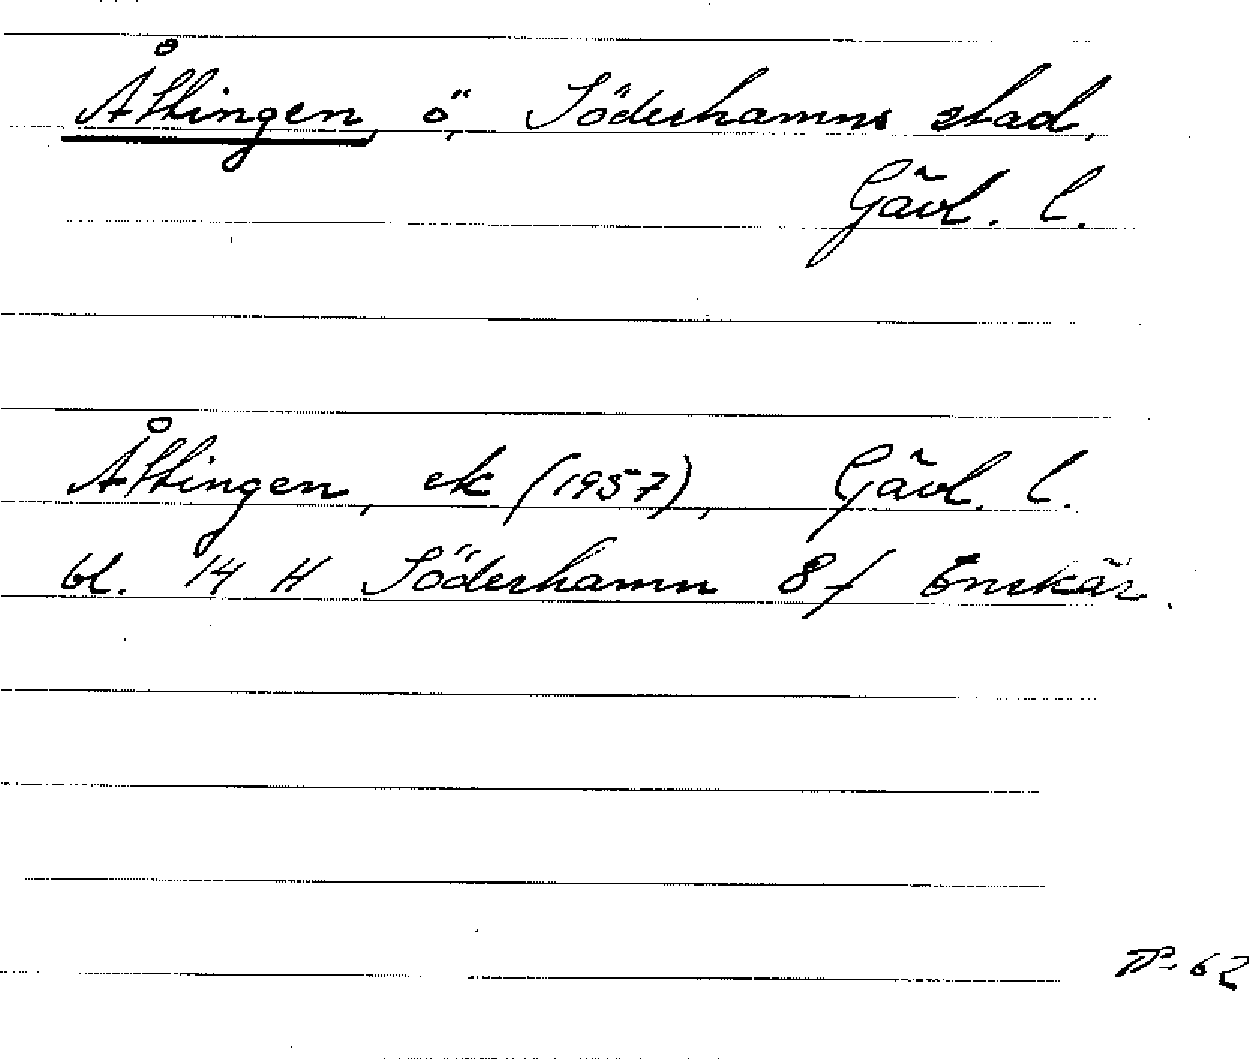 Åttingen, ö, Söderhamns stad,
Gävl. l.
Åttingen, ek (1957), Gävl. l.
bl. 14 H Söderhamn 8 f Enskär.
62